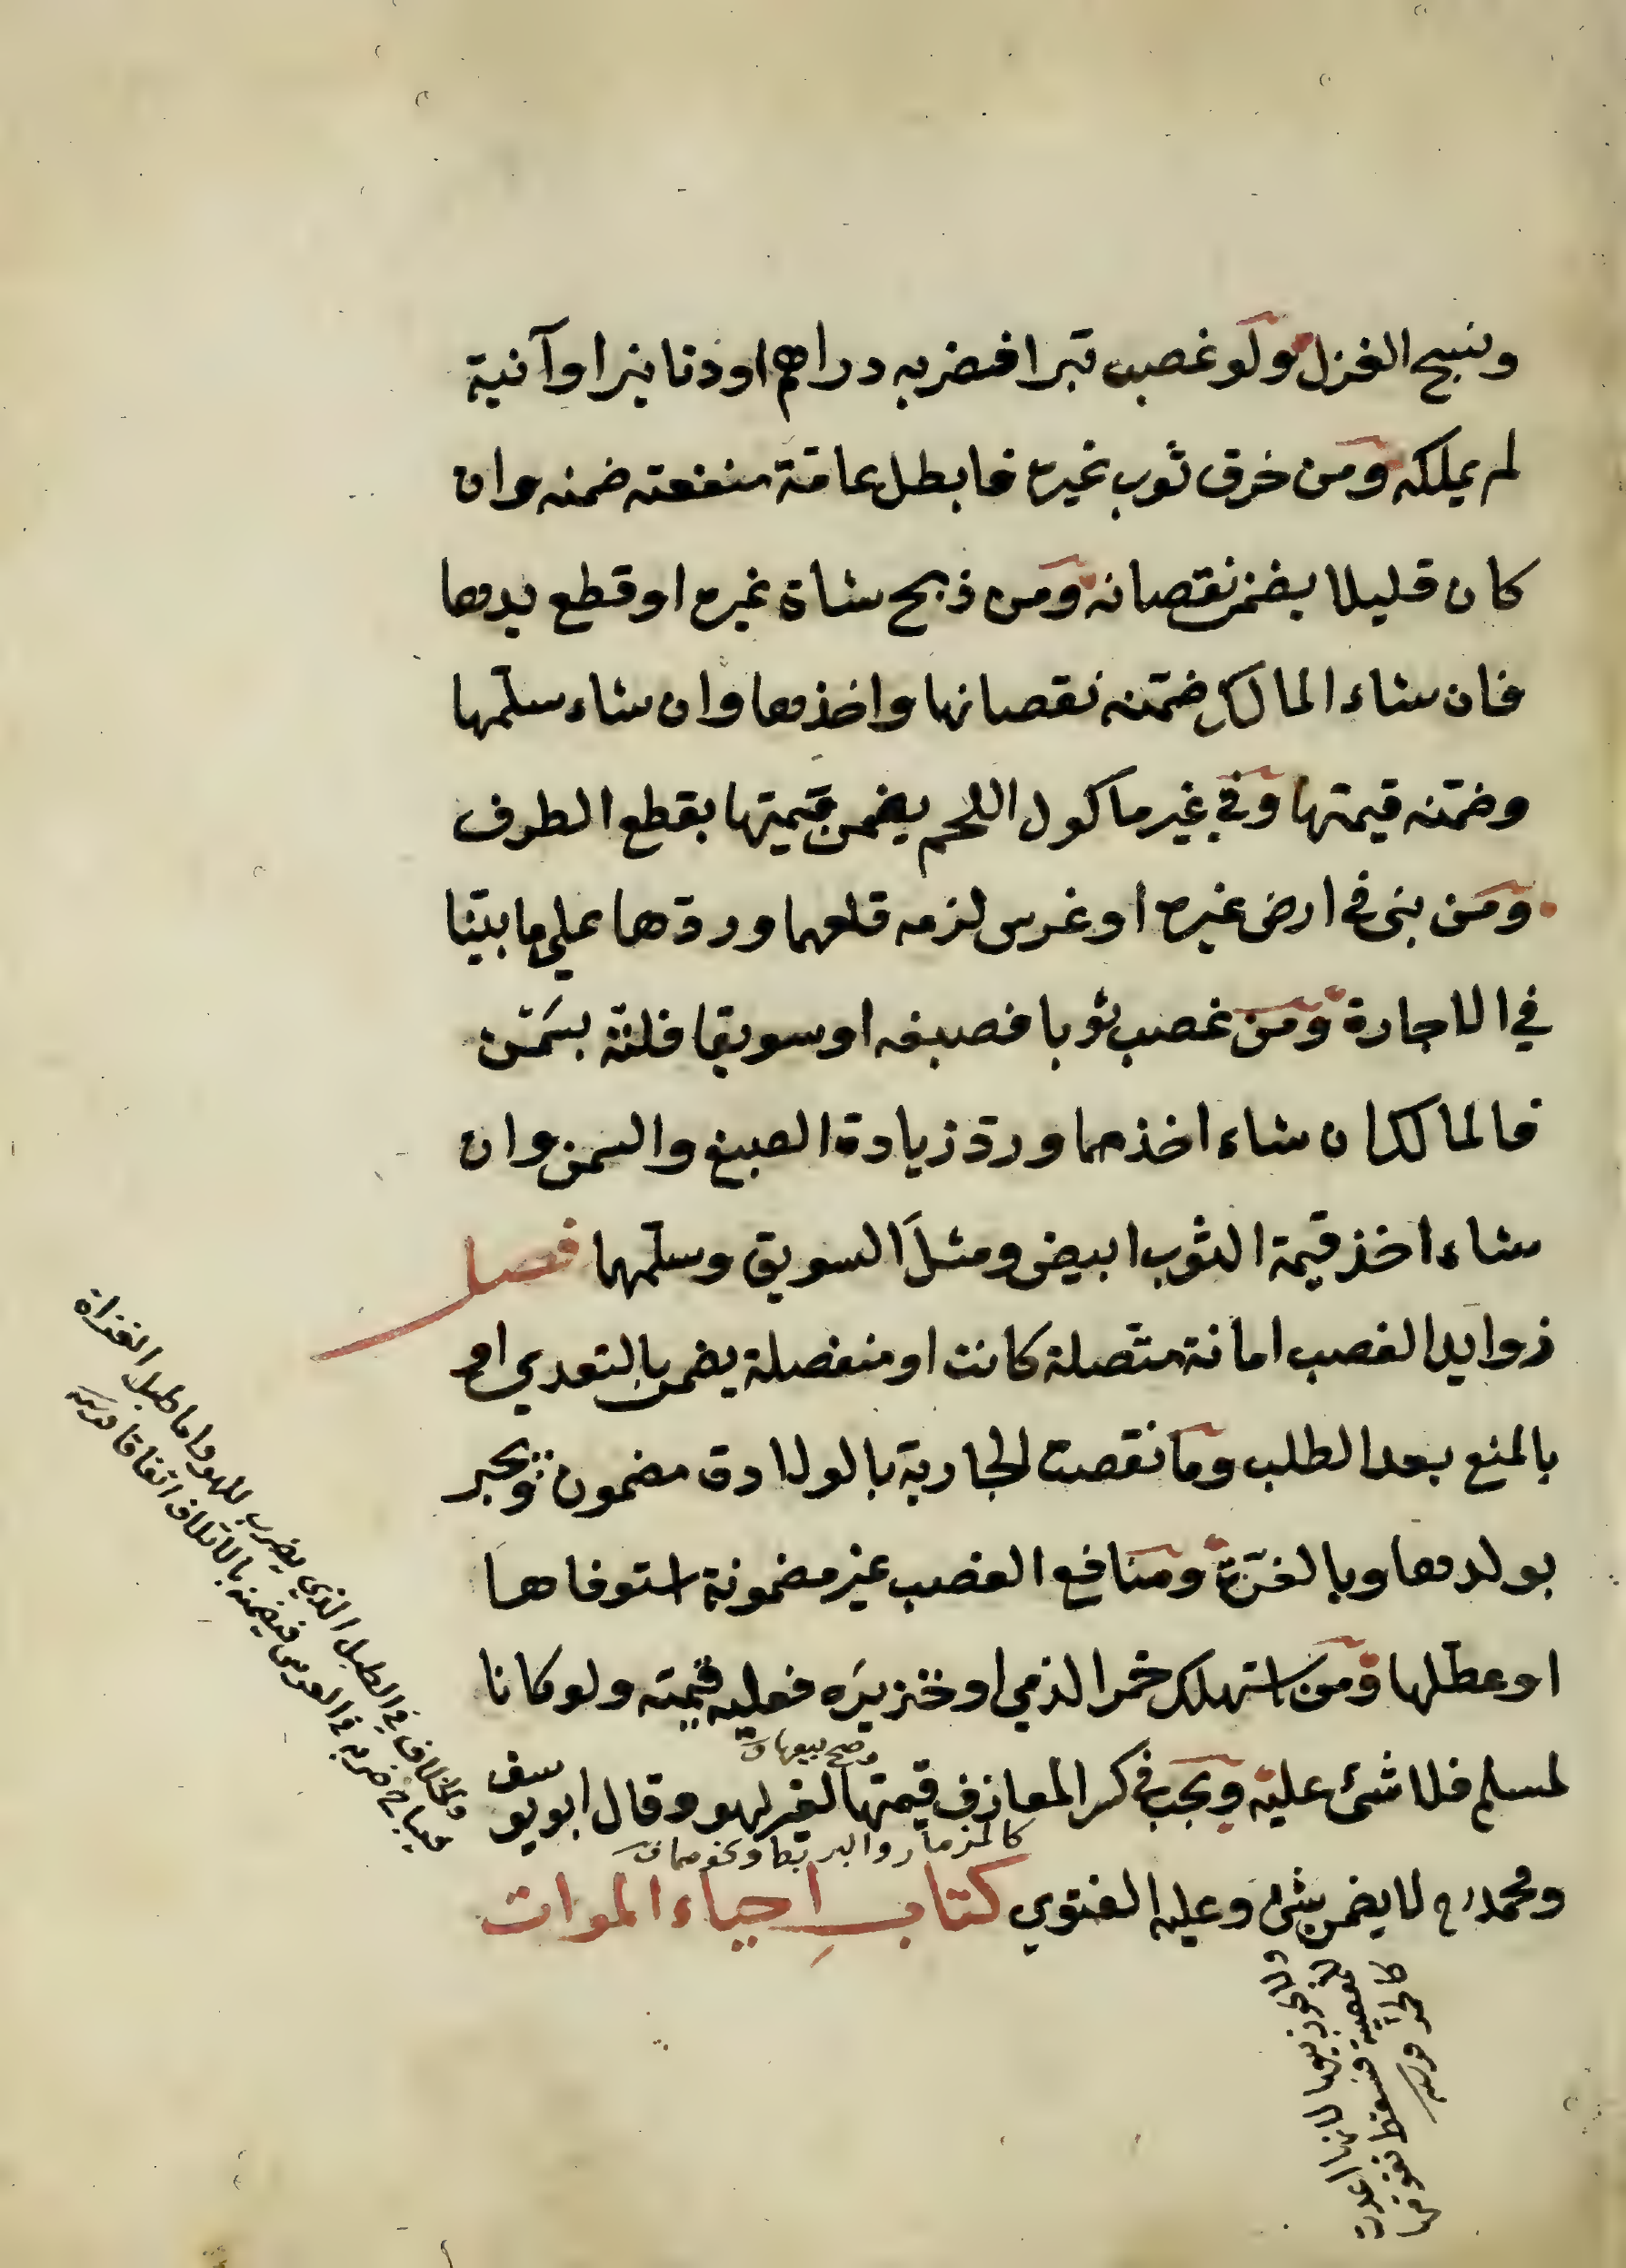 ونسج الغزل ولو غصب تبرا فضربه دراهم او دنانيرا وآنية
لم يملكه ومن خرق ثوب غيره فابطل عامّة منفعته ضمنه وان
كان قليلا يضمن نقصانه ومن ذبح شاة غيره او قطع يدها
فان شاء المالك ضمّنه نقصانها واخذها وان شاء سلّمها
وضمّنه قيمتها وفي غير ماكول اللحم يضمن قيمتها بقطع الطرف
ومن بنى في ارض غيره او غرس لزمه قلعهما وردّها على ما بيّنا
في الاجارة ومن غصب ثوبا فصبغه او سويقا فلتّه بسَمْن
فالمالك ان شاء اخذهما وردّ زيادة الصبغ والسمن وان
شاء اخذ قيمة الثوب ابيض ومثلَ السويق وسلّمهما فصل
زوايد الغصب امانة متّصلة كانت او منفصلة يضمن بالتعدي او
بالمنع بعد الطلب وما نقصت الجارية بالولادة مضمون ويجبر
بولدها وبالغرّة ومنافع الغصب غير مضمونة استوفاها
او عطّلها ومن استهلك خمر الذمي او خنزيره فعليه قيمته ولو كانا
وصح بيعها
لمسلم فلا شئ عليه ويجب في كسر المعازف قيمتها لغير لهو وقال ابو يوسف
كالمزمار والبربط ونحوهما
ومحمد رح لا يضمن بشئ وعليه الفتوي كتاب احياء الموات
والخلاف في الطبل الذي يضرب للهو واما طبل الغزاة
مباح ضربه في العرس فيضمنه بالاتلاف اتفاقا
ولا يجوز بيعها لانها اعدت
للمعصية فسقط تقومها
كالخمر